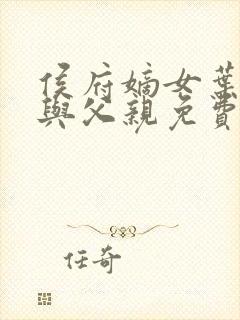 侯府嫡女葉
與父親免費
任奇